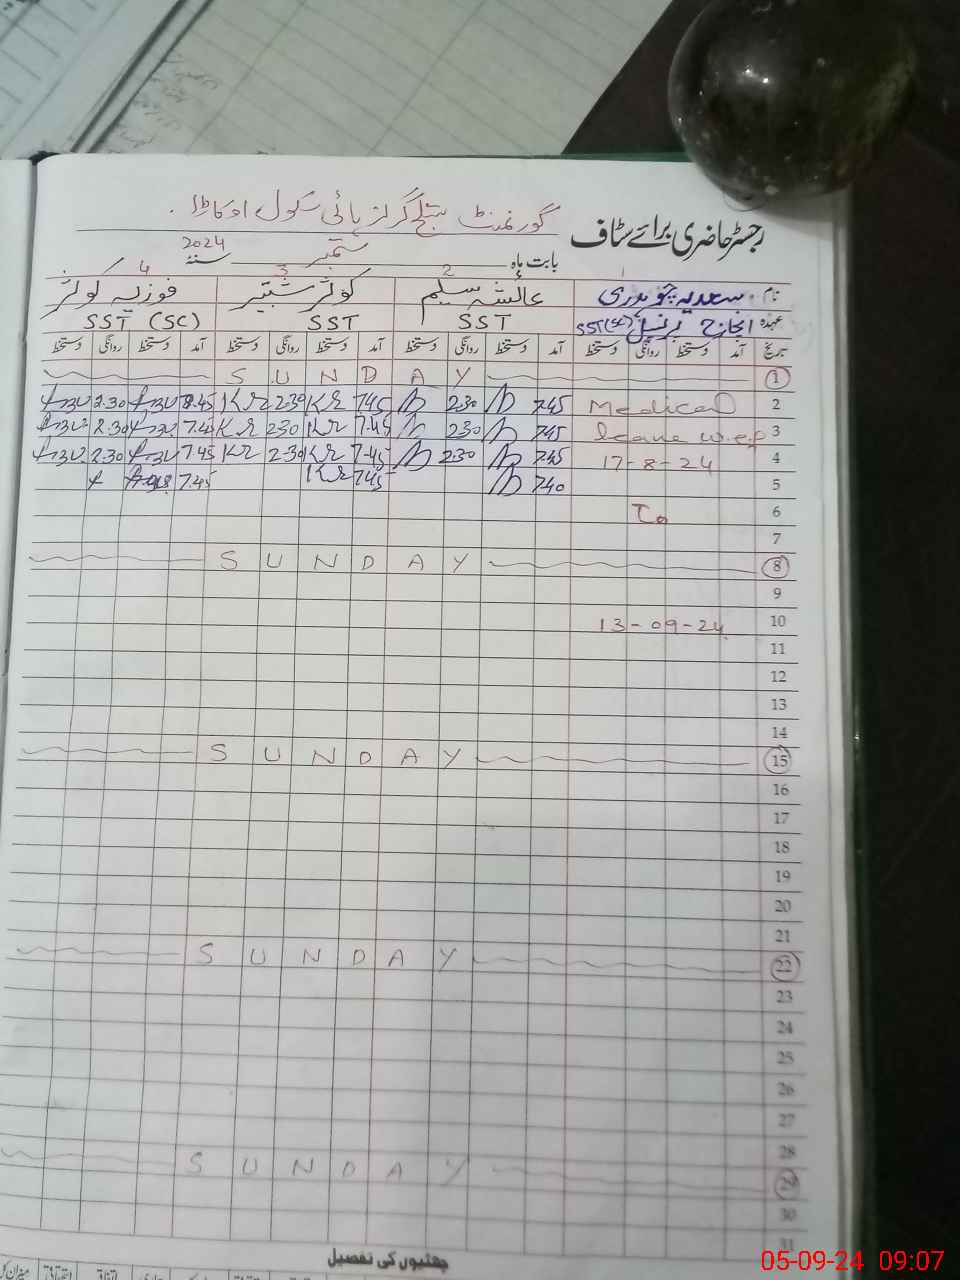 گورنمنٹ ستلج گرلز ہائی سکول اوکاڑا.
رجسٹر حاضری برائے سٹاف
بابت ماہ ستمبر سنۂ 2024
1 2 3 4
نام سعدیہ چوہدری عائشہ سلیم کوثر شبیر فوزیہ کوثر
عہدہ انچارج پرنسپل SST(SC) SST SST SST (SC)
تاریخ آمد دستخط روانگی دستخط آمد دستخط روانگی دستخط آمد دستخط روانگی دستخط آمد دستخط روانگی دستخط
1 S U N D A Y
2 Medical 7.45 2.30 7.45 2.30 8.45 2.30
3 leave w.e.f 7.45 2.30 7.45 2.30 7.45 2.30
4 17-8-24 7.45 2.30 7.45 2.30 7.45 2.30
5 7.40 7.45 7.45
6 To
7
8 S U N D A Y
9
10 13-09-24
11
12
13
14
15 S U N D A Y
16
17
18
19
20
21
22 S U N D A Y
23
24
25
26
27
28
29 S U N D A Y
30
31
چھٹیوں کی تفصیل
05-09-24 09:07